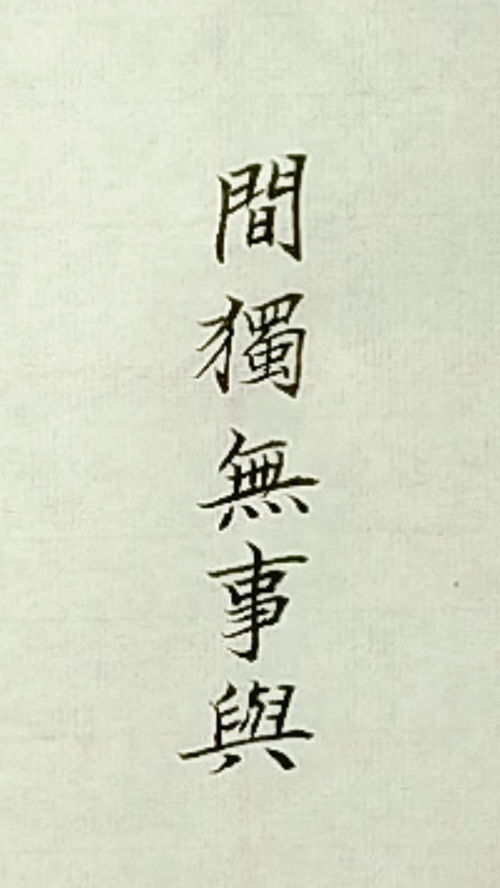 間獨無事與